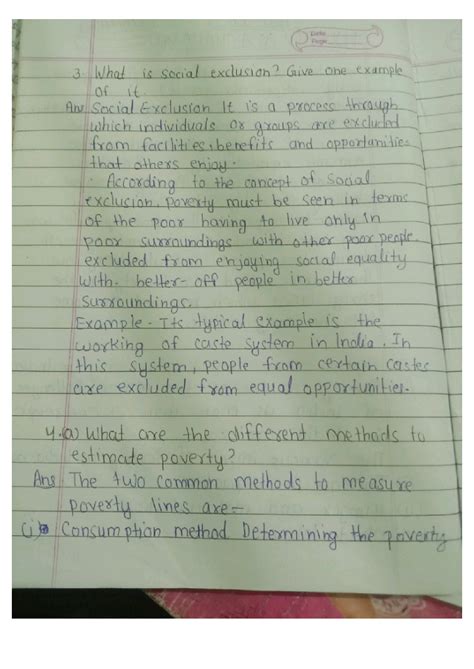 Date
Page
3 What is social exclusion? Give one example
of it
Ans Social Exclusion It is a process through
which individuals or groups are excluded
from facilities, benefits and opportunities
that others enjoy.
According to the concept of social
exclusion, poverty must be seen in terms
of the poor having to live only in
poor surroundings with other poor people,
excluded from enjoying social equality
with better-off people in better
surroundings.
Example - Its typical example is the
working of caste system in India. In
this system, people from certain castes
are excluded from equal opportunities.
4.(a) What are the different methods to
estimate poverty?
Ans The two common methods to measure
poverty lines are -
(i) Consumption method Determining the poverty